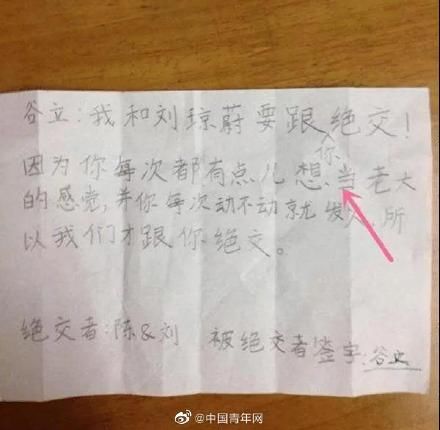 谷立:我和刘琼蔚要跟你绝交!
因为你每次都有点儿想当老大
的感觉,并你每次动不动就发,所
以我们才跟你绝交。
绝交者:陈&刘 被绝交者签字:谷立
@中国青年网